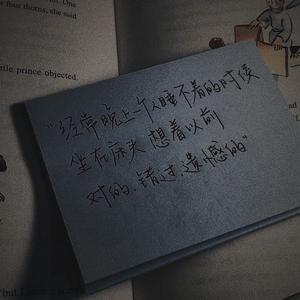 four thorns, she said
little prince objected.
"经常晚上一个人睡不着的时候
坐在床头 想着以前
对的.错过.遗憾的"
"but I